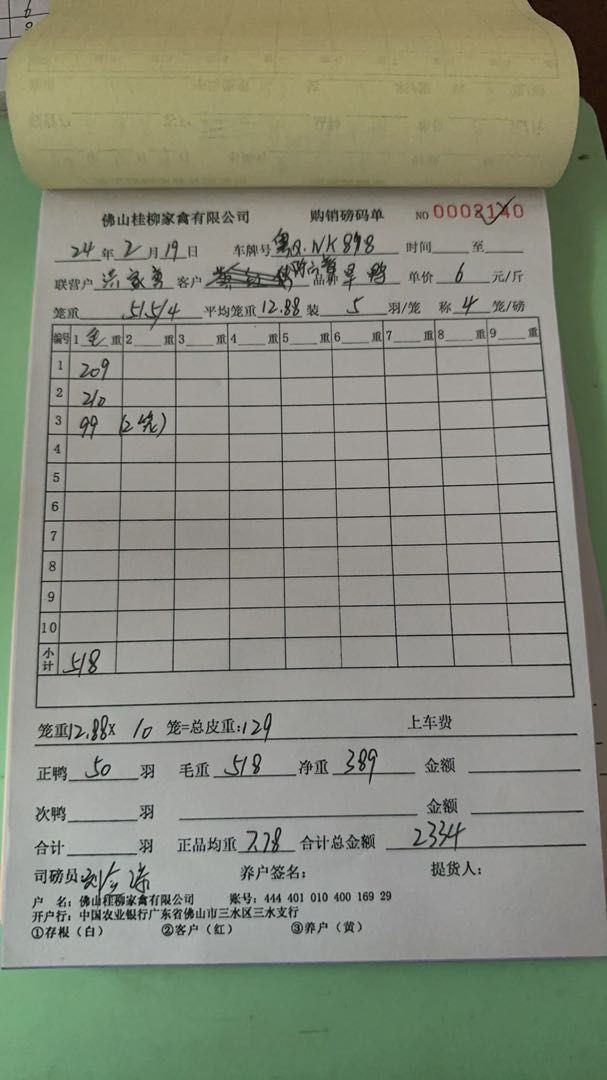 佛山桂柳家禽有限公司 购销磅码单 NO 0002140
24年2月19日 车牌号 粤Q.NK898 时间 至
联营户 客户 品种 旱鸭 单价 6 元/斤
笼重 51.5/4 平均笼重 12.88 装 5 羽/笼 称 4 笼/磅
编号 1 毛 重 2 重 3 重 4 重 5 重 6 重 7 重 8 重 9 重
1 209
2 210
3 99 (2笼)
4
5
6
7
8
9
10
小计 518
笼重12.88× 10 笼=总皮重:129 上车费
正鸭 50 羽 毛重 518 净重 389 金额
次鸭 羽 金额
合计 羽 正品均重 7.78 合计总金额 2334
司磅员: 养户签名: 提货人:
户 名: 佛山桂柳家禽有限公司 账号: 444 401 010 400 169 29
开户行: 中国农业银行广东省佛山市三水区三水支行
①存根（白） ②客户（红） ③养户（黄）